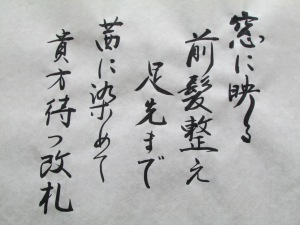 窓に映る
前髪整え
足先まで
茜に染めて
貴方待つ改札